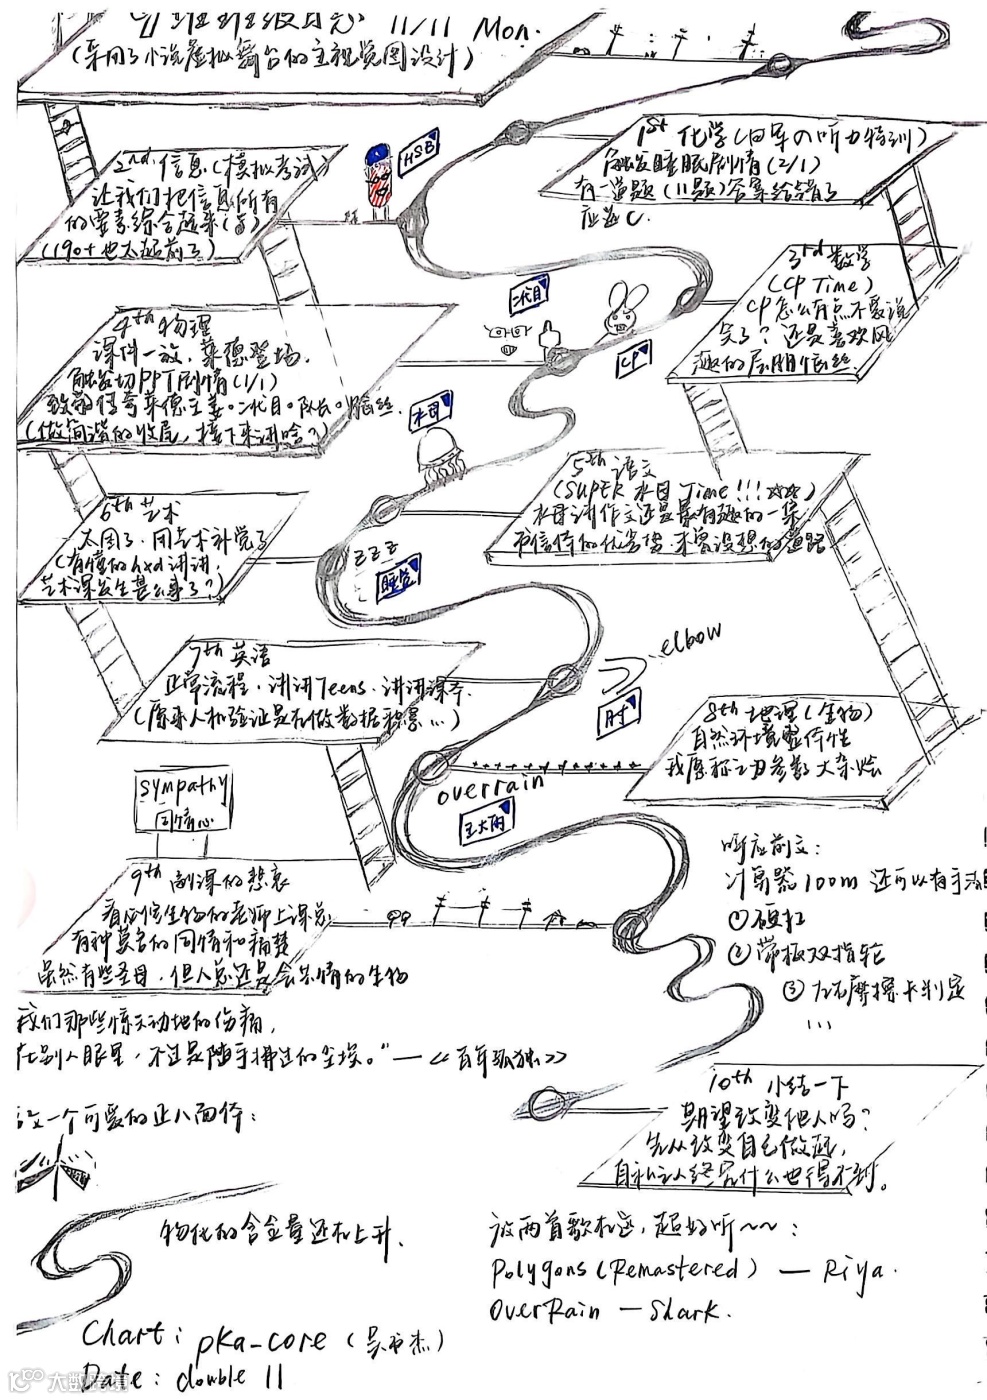 班级日志 11/11 Mon.
(采用了小说虚拟舞台的主视觉图设计)
1st 化学(日常の听力特训)
触发睡眠剧情(2/1)
有一道题(11题)答案给错了
应选C.
2nd. 信息(模拟考试)
让我们把信息所有
的要素综合起来(
(190+也太超前了)
HSB
3rd 数学
(CP Time)
CP怎么有点不爱说
笑了? 还是喜欢风
趣的
二代目
CP
4th 物理
课件一放,莱德登场.
触发切PPT剧情(1/1)
致敬传奇莱德主美。二代目。队长。
(做简谐的收尾,接下来讲啥?)
水母
5th 语文
(SUPER 水母 Time!!!☆☆)
水母讲作文还是最有趣的一集
书信体的优劣势,未曾设想的道路
6th 艺术
太困了.用艺术补觉了
(有懂的hxd讲讲,
艺术课发生甚么事了?)
ZZZ
睡觉
7th 英语
正常流程.讲讲Teens.讲讲课本.
(原来人机验证是在做数据积累...)
elbow
肘
8th 地理(生物)
自然环境整体性
我愿称之为参数大杂烩
sympathy
同情心
overrain
王大雨
9th 副课的悲哀
看必修生物的老师上课总
有种莫名的同情和痛楚
虽然有些圣母,但人总还是会共情的生物
我们那些惊天动地的伤痛,
在别人眼里,不过是随手拂过的尘埃。" —《百年孤独》
听应前文:
计算器100m 还可以有手法
①硬扛
②常极双指轮
③左右摩擦卡判定
...
10th 小结一下
期望改变他人吗?
先从改变自己做起,
自私之人终究什么也得不到。
这一个可爱的正八面体:
物化的含金量还在上升.
这两首歌机迷,超好听~~:
Polygons (Remastered) — Riya.
OverRain — Shark.
Chart: pka-core (吴)
Date: double 11
大邮